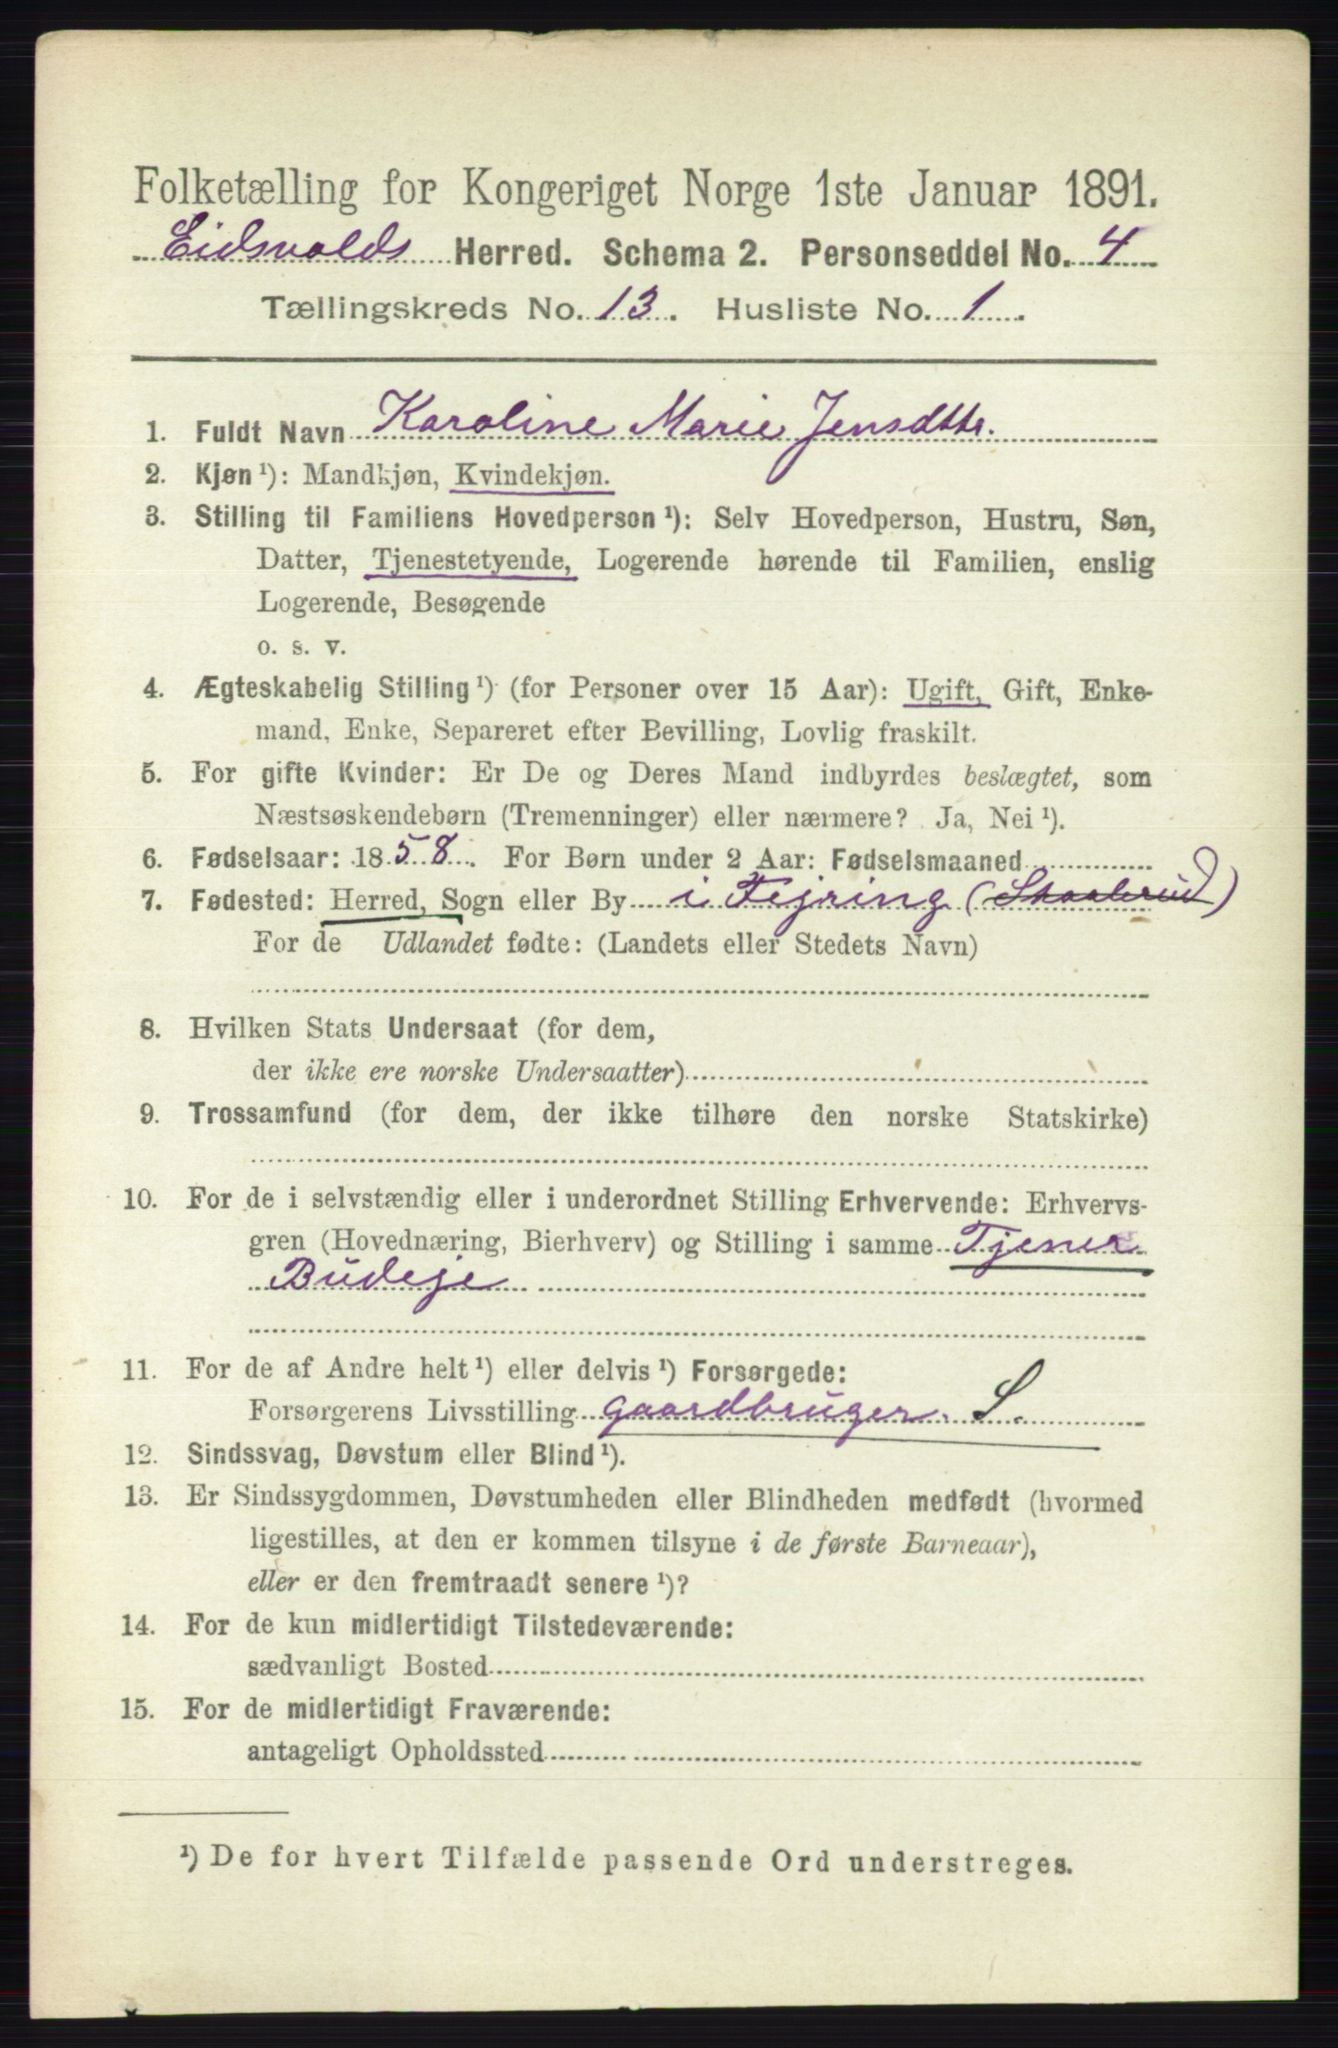 Folketælling for Kongeriget Norge 1ste Januar 1891.
Eidsvolds Herred. Schema 2. Personseddel No. 4
Tællingskreds No. 13. Husliste No. 1
1. Fuldt Navn Karoline Marie Jensdttr.
2. Kjøn ¹): Mandkjøn, Kvindekjøn.
3. Stilling til Familiens Hovedperson ¹): Selv Hovedperson, Hustru, Søn,
Datter, Tjenestetyende, Logerende hørende til Familien, enslig
Logerende, Besøgende
o. s. v.
4. Ægteskabelig Stilling ¹) (for Personer over 15 Aar): Ugift, Gift, Enke-
mand, Enke, Separeret efter Bevilling, Lovlig fraskilt.
5. For gifte Kvinder: Er De og Deres Mand indbyrdes beslægtet, som
Næstsøskendebørn (Tremenninger) eller nærmere? Ja, Nei ¹).
6. Fødselsaar: 1858. For Børn under 2 Aar: Fødselsmaaned
7. Fødested: Herred, Sogn eller By i Fejring (Skaalerud)
For de Udlandet fødte: (Landets eller Stedets Navn)
8. Hvilken Stats Undersaat (for dem,
der ikke ere norske Undersaatter)
9. Trossamfund (for dem, der ikke tilhøre den norske Statskirke)
10. For de i selvstændig eller i underordnet Stilling Erhvervende: Erhvervs-
gren (Hovednæring, Bierhverv) og Stilling i samme Tjener
Budeje
11. For de af Andre helt ¹) eller delvis ¹) Forsørgede:
Forsørgerens Livsstilling gaardbruger. S.
12. Sindssvag, Døvstum eller Blind ¹).
13. Er Sindssygdommen, Døvstumheden eller Blindheden medfødt (hvormed
ligestilles, at den er kommen tilsyne i de første Barneaar),
eller er den fremtraadt senere ¹)?
14. For de kun midlertidigt Tilstedeværende:
sædvanligt Bosted
15. For de midlertidigt Fraværende:
antageligt Opholdssted
¹) De for hvert Tilfælde passende Ord understreges.